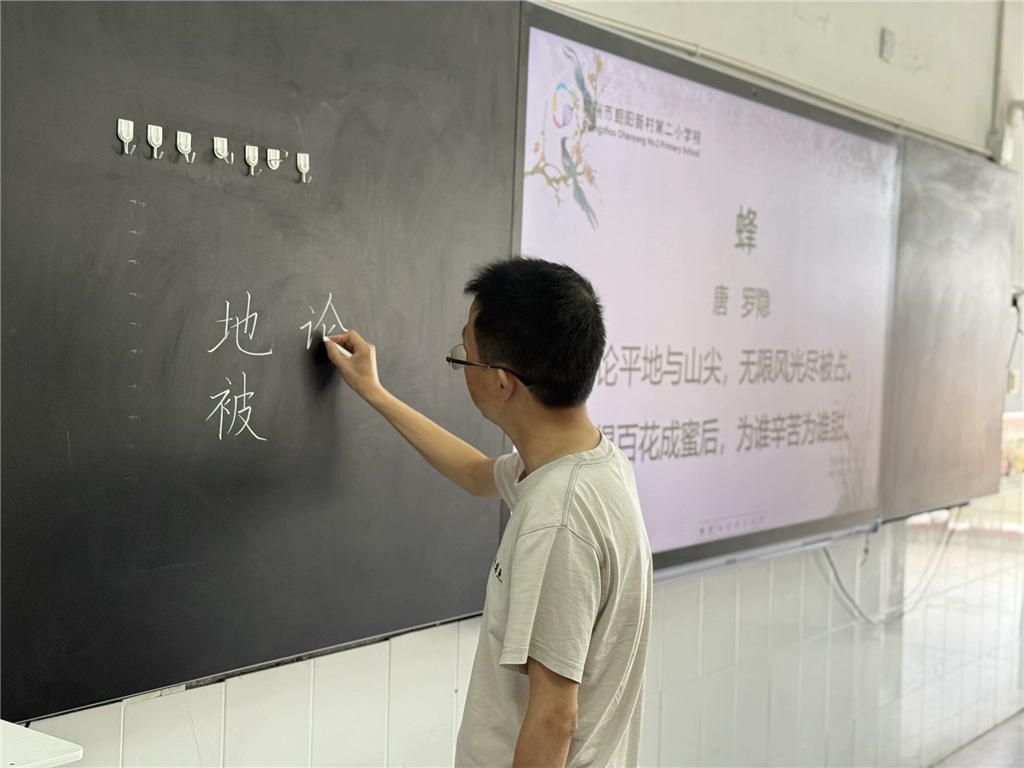 地 论
被
州市朝阳新村第二小学校
Chaoyang No.2 Primary School
蜂
唐 罗隐
论平地与山尖，无限风光尽被占。
得百花成蜜后，为谁辛苦为谁甜。